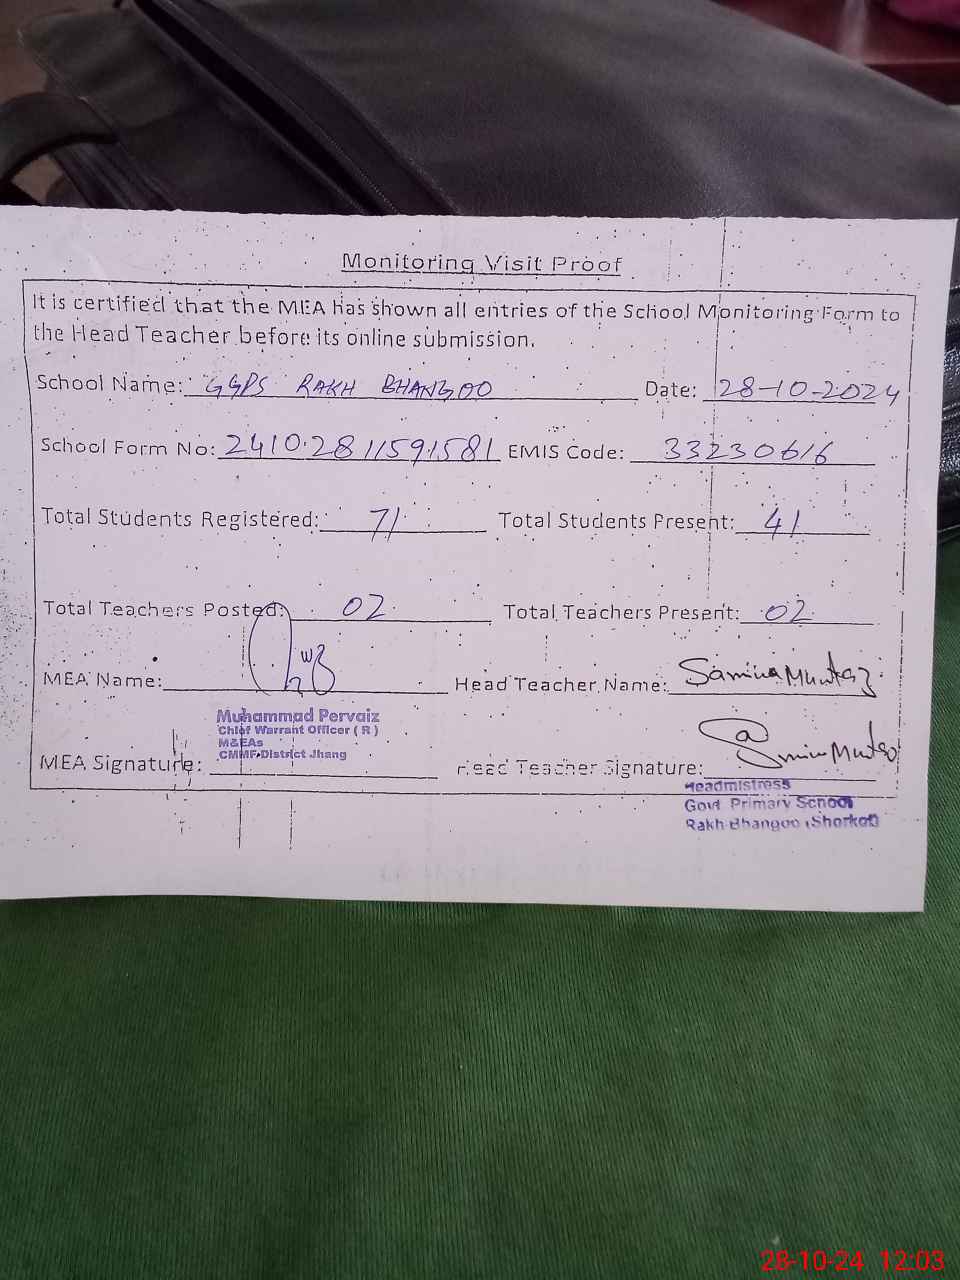 Monitoring Visit Proof
It is certified that the MEA has shown all entries of the School Monitoring Form to
the Head Teacher before its online submission.
School Name: GGPS RAKH BHANGOO Date: 28-10-2024
School Form No: 24102811591581 EMIS Code: 33230616
Total Students Registered: 71 Total Students Present: 41
Total Teachers Posted: 02 Total Teachers Present: 02
MEA Name: Head Teacher Name: Samina Mumtaz
Muhammad Pervaiz
Chief Warrant Officer ( R )
M&EAs
CMMF District Jhang
MEA Signature: Head Teacher Signature: Samina Mumtaz
Headmistress
Govt Primary School
Rakh Bhangoo (Shorkot)
28-10-24 12:03